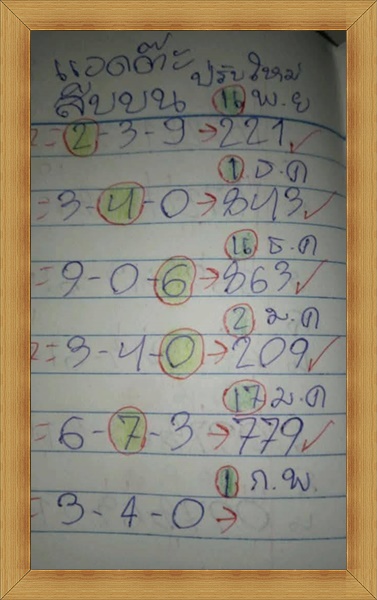 แอดต๊ะ ปรับใหม่
สิบบน 16 พ.ย
2=2-3-9→221✓
1.ธ.ค
=3-4-0→843✓
16 ธ.ค
=9-0-6→863✓
2 ม.ค
2=3-4-0→209✓
17 ม.ค
=6-7-3→779✓
1 ก.พ.
=3-4-0→